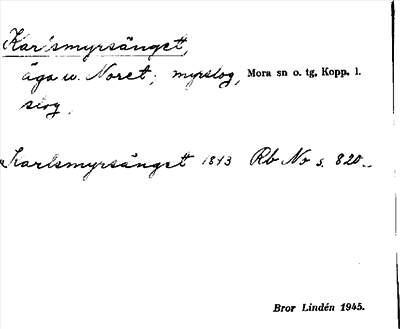 Kar'smyrsänget,
äga u. Noret; myrslog, Mora sn o. tg, Kopp. l.
slog,
Karlsmyrsänget 1813 Rb No s. 820.
Bror Lindén 1945.